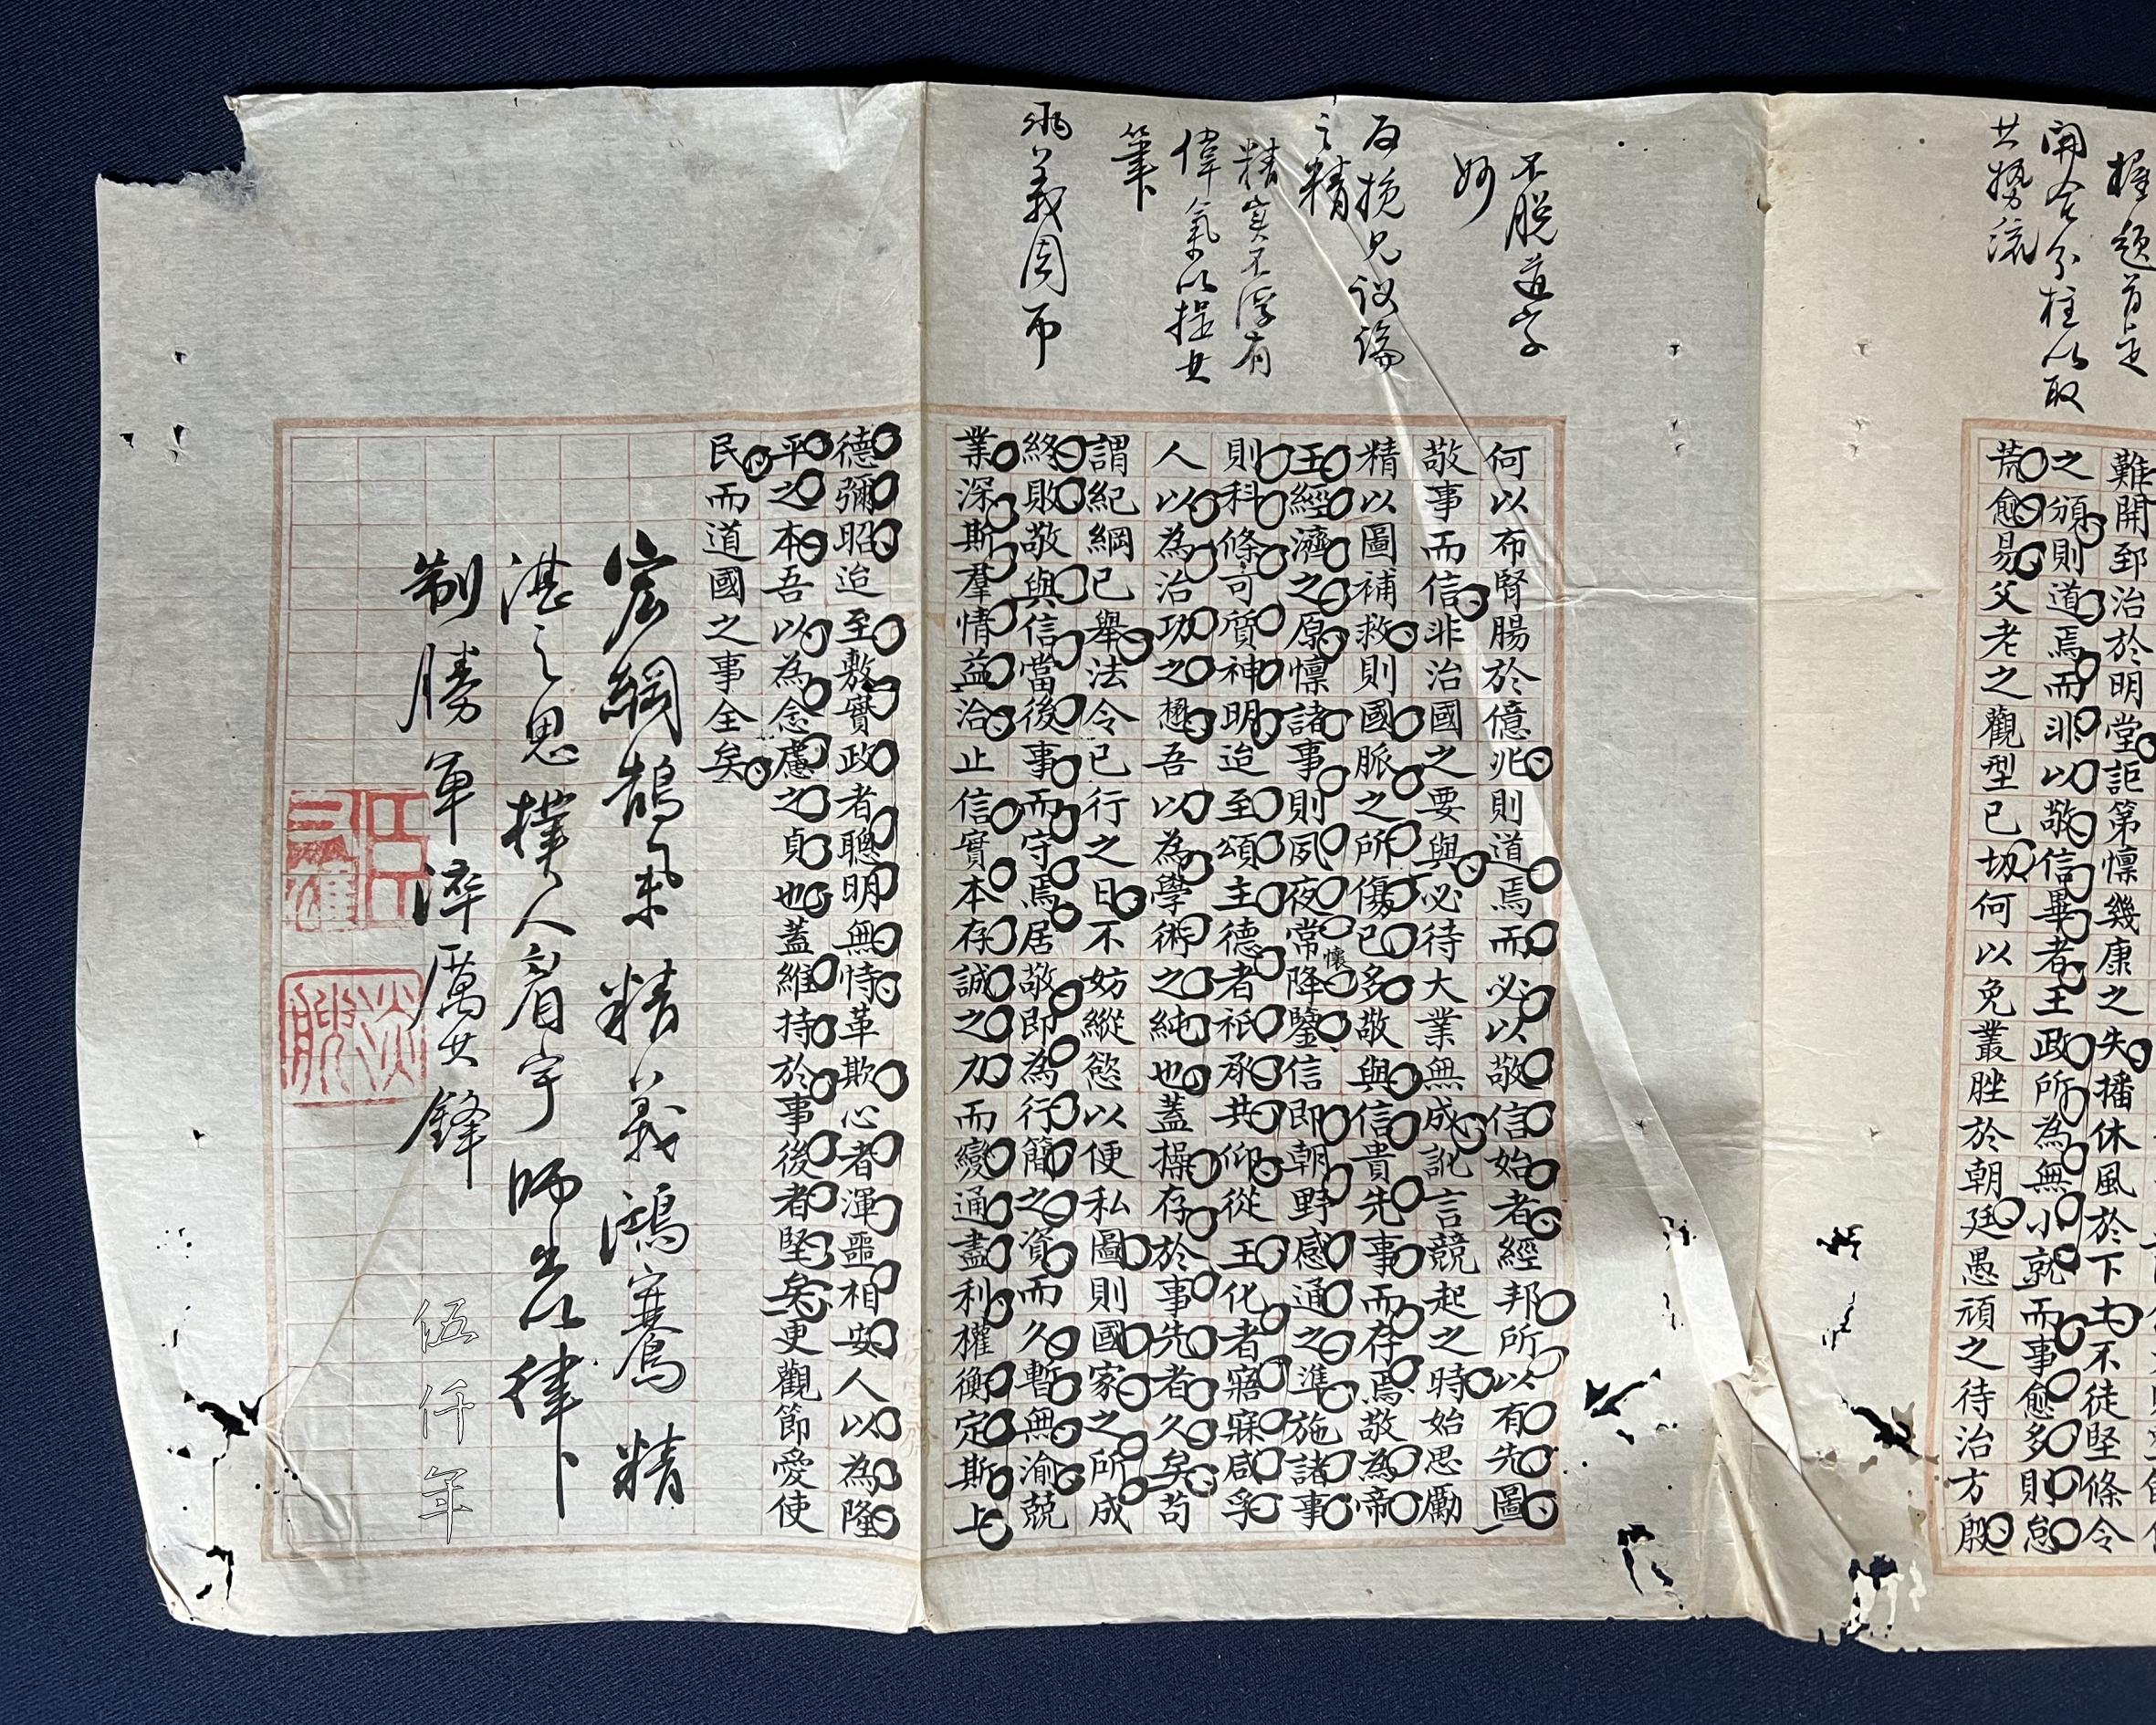 握題首
開合分柱以取
其勢流
難開郅治於明堂詎第懍幾康之失播休風於下士不徒堅條令
之頒則道焉而非以敬信畢者王政所為無小就而事愈多則怠
荒愈易父老之觀型已切何以免叢脞於朝廷愚頑之待治方殷
不脫道字
妙
反挽見議論
之精
精實不浮有
偉氣以提其
筆
兩義周帀
何以布腎腸於億兆則道焉而必以敬信始者經邦所以有先圖
敬事而信非治國之要與必待大業無成訛言競起之時始思勵
精以圖補救則國脈之所傷已多敬與信貴先事而存焉敬為帝
王經濟之原懍諸事則夙夜常懷降鑒信即朝野感通之準施諸事
則科條可質神明迨至頌主德者祇承共仰從王化者寤寐咸孚
人以為治功之懋吾以為學術之純也蓋操存於事先者久矣苟
謂紀綱已舉法令已行之日不妨縱慾以便私圖則國家之所成
終敗敬與信當後事而守焉居敬即為行簡之資而久暫無渝兢
業深斯羣情益洽止信實本存誠之力而變通盡利權衡定斯上
德彌昭迨至敷實政者聰明無恃革欺心者渾噩相安人以為隆
平之本吾以為念慮之貞也蓋維持於事後者堅矣更觀節愛使
民而道國之事全矣
宏綱鵠氣精義鴻騫精
湛之思撲人眉宇師出以律
制勝軍淬厲其鋒
伍仟年